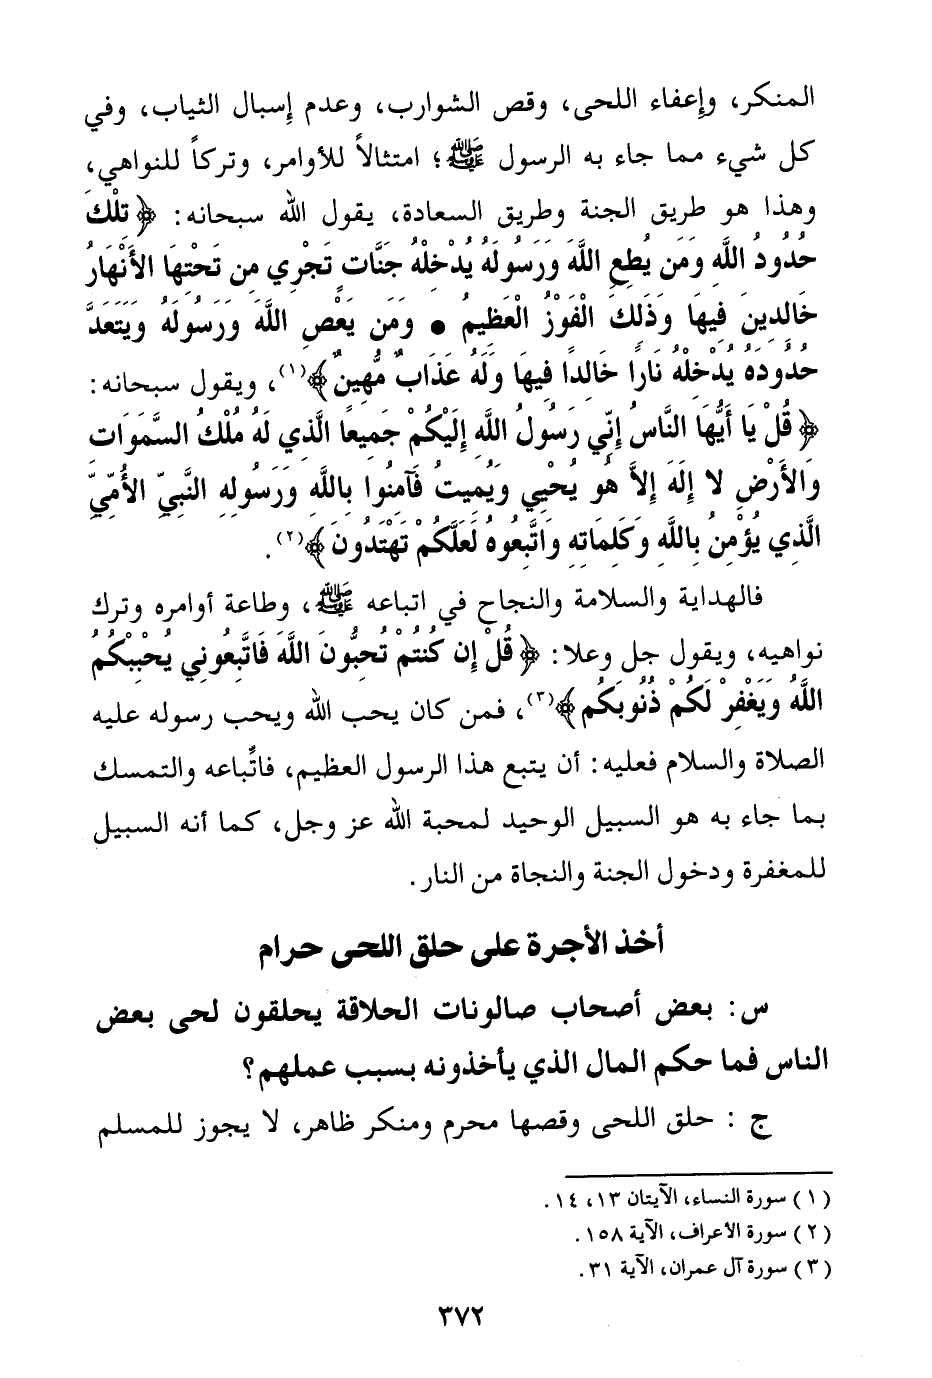 المنكر، وإعفاء اللحى، وقص الشوارب، وعدم إسبال الثياب، وفي
كل شيء مما جاء به الرسول ﷺ؛ امتثالاً للأوامر، وتركاً للنواهي،
وهذا هو طريق الجنة وطريق السعادة، يقول الله سبحانه: ﴿تِلْكَ
حُدُودُ اللَّهِ وَمَن يُطِعِ اللَّهَ وَرَسُولَهُ يُدْخِلْهُ جَنَّاتٍ تَجْرِي مِن تَحْتِهَا الأَنْهَارُ
خَالِدِينَ فِيهَا وَذَلِكَ الْفَوْزُ الْعَظِيمُ • وَمَن يَعْصِ اللَّهَ وَرَسُولَهُ وَيَتَعَدَّ
حُدُودَهُ يُدْخِلْهُ نَارًا خَالِدًا فِيهَا وَلَهُ عَذَابٌ مُّهِينٌ﴾(١)، ويقول سبحانه:
﴿قُلْ يَا أَيُّهَا النَّاسُ إِنِّي رَسُولُ اللَّهِ إِلَيْكُمْ جَمِيعاً الَّذِي لَهُ مُلْكُ السَّمَوَاتِ
وَالأَرْضِ لا إِلَهَ إِلاَّ هُوَ يُحْيِي وَيُمِيتُ فَآمِنُوا بِاللَّهِ وَرَسُولِهِ النَّبِيِّ الأُمِّيِّ
الَّذِي يُؤْمِنُ بِاللَّهِ وَكَلِمَاتِهِ وَاتَّبِعُوهُ لَعَلَّكُمْ تَهْتَدُونَ﴾(٢).
فالهداية والسلامة والنجاح في اتباعه ﷺ، وطاعة أوامره وترك
نواهيه، ويقول جل وعلا: ﴿قُلْ إِن كُنتُمْ تُحِبُّونَ اللَّهَ فَاتَّبِعُونِي يُحْبِبْكُمُ
اللَّهُ وَيَغْفِرْ لَكُمْ ذُنُوبَكُمْ﴾(٣)، فمن كان يحب الله ويحب رسوله عليه
الصلاة والسلام فعليه: أن يتبع هذا الرسول العظيم، فاتِّباعه والتمسك
بما جاء به هو السبيل الوحيد لمحبة الله عز وجل، كما أنه السبيل
للمغفرة ودخول الجنة والنجاة من النار.
أخذ الأجرة على حلق اللحى حرام
س: بعض أصحاب صالونات الحلاقة يحلقون لحى بعض
الناس فما حكم المال الذي يأخذونه بسبب عملهم؟
ج : حلق اللحى وقصها محرم ومنكر ظاهر، لا يجوز للمسلم
(١) سورة النساء، الآيتان ١٣، ١٤.
(٢) سورة الأعراف، الآية ١٥٨.
(٣) سورة آل عمران، الآية ٣١.
٣٧٢